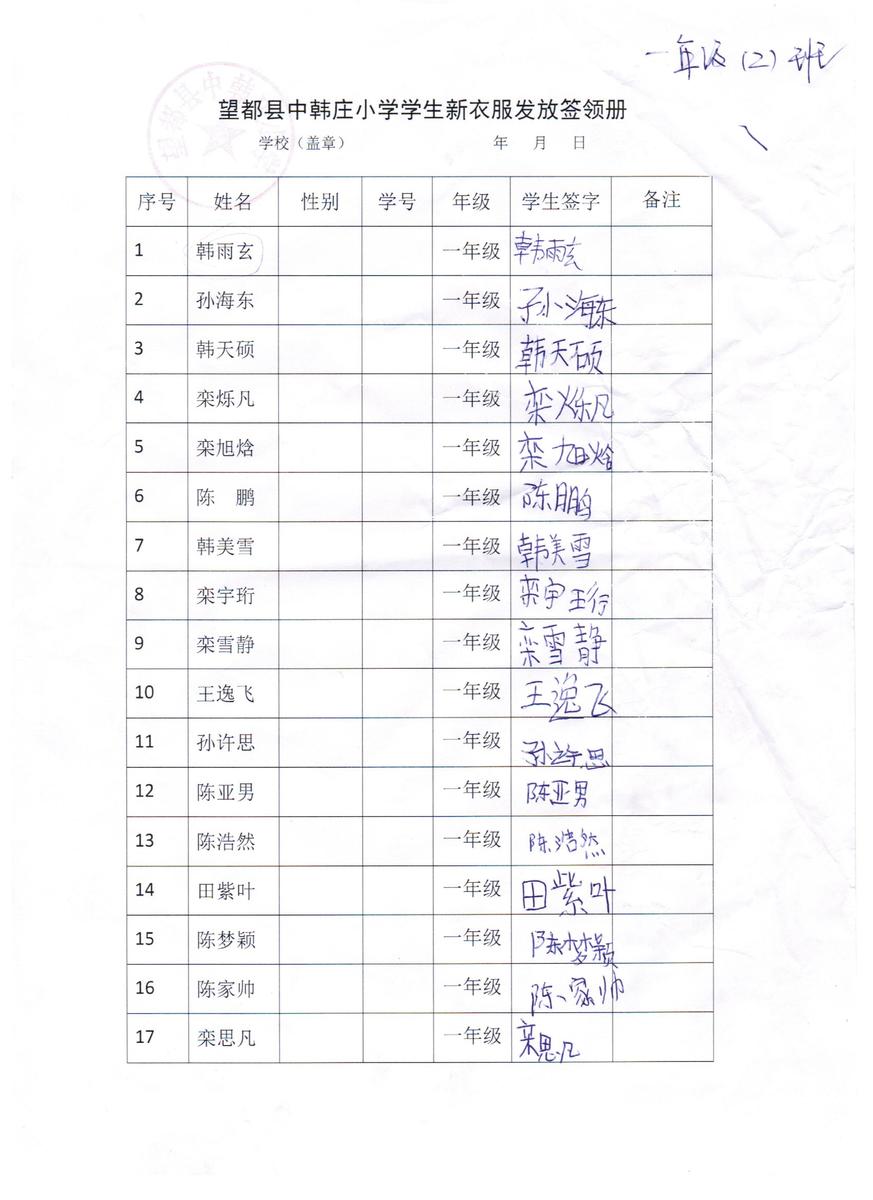 一年级（2）班
望都县中韩庄小学学生新衣服发放签领册
学校（盖章） 年 月 日
序号 姓名 性别 学号 年级 学生签字 备注
1 韩雨玄 一年级 韩雨玄
2 孙海东 一年级 孙海东
3 韩天硕 一年级 韩天硕
4 栾烁凡 一年级 栾烁凡
5 栾旭焓 一年级 栾旭焓
6 陈 鹏 一年级 陈鹏
7 韩美雪 一年级 韩美雪
8 栾宇珩 一年级 栾宇珩
9 栾雪静 一年级 栾雪静
10 王逸飞 一年级 王逸飞
11 孙许思 一年级 孙许思
12 陈亚男 一年级 陈亚男
13 陈浩然 一年级 陈浩然
14 田紫叶 一年级 田紫叶
15 陈梦颖 一年级 陈梦颖
16 陈家帅 一年级 陈家帅
17 栾思凡 一年级 栾思凡